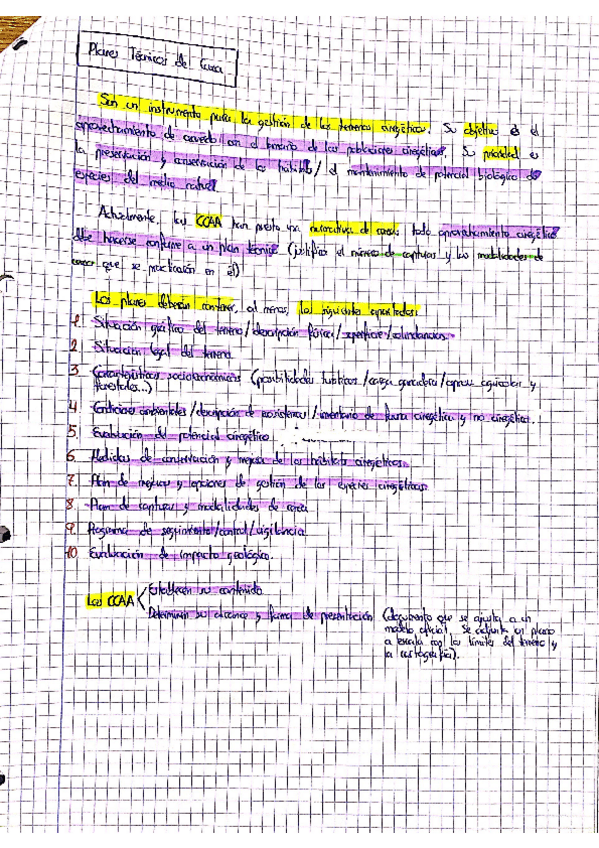 Planes Técnicos de Caza
Son un instrumento para la gestión de los terrenos cinegéticos. Su objetivo es el
aprovechamiento de acuerdo con el tamaño de las poblaciones cinegéticas. Su prioridad es
la preservación y conservación de los hábitats/ el mantenimiento de potencial biológico de
especies del medio natural
Actualmente, las CCAA han puesto una normativa de caza: todo aprovechamiento cinegético
debe hacerse conforme a un plan técnico (justifica el número de capturas y las modalidades de
caza que se practicarán en él)
Los planes deberán contener, al menos, los siguientes apartados:
1. Situación gráfica del terreno/descripción física/superficie/colindancias.
2. Situación legal del terreno.
3. Características socioeconómicas (posibilidades turísticas/carga ganadera/aprov. agrícolas y
forestales...)
4. Condiciones ambientales/descripción de ecosistemas/inventario de fauna cinegética y no cinegética.
5. Evaluación del potencial cinegético
6. Medidas de conservación y mejora de los hábitats cinegéticos.
7. Plan de mejoras y opciones de gestión de las especies cinegéticas.
8. Plan de capturas y modalidades de caza
9. Programa de seguimiento/control/vigilancia.
10. Evaluación de impacto geológico.
Las CCAA Establecen su contenido
Determinan su alcance y forma de presentación (documento que se ajusta a un
modelo oficial. Se adjunta un plano
a escala con los límites del terreno y
la cartografía).